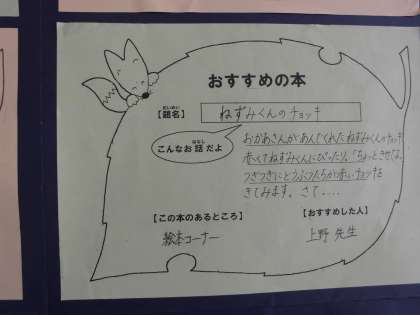 おすすめの本
だいめい
【題名】 ねずみくんのチョッキ
はなし
こんなお話だよ
おかあさんがあんでくれたねずみくんのチョッキ
赤くてねずみくんにぴったり。「ちょっときせてよ」
つぎつぎにどうぶつたちが赤いチョッキを
きてみます。さて....
【この本のあるところ】
絵本コーナー
【おすすめした人】
上野 先生